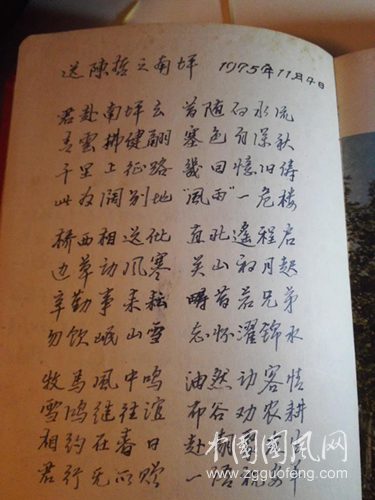 送陳哲之南坪 1975年11月4日
君赴南坪去 首随白水流
青雲拂健翮 塞色有深秋
千里上征路 幾回憶旧俦
此 阔别地 "風雨"一危楼
桥西相送 直北遙程启
边草动風寒 关山初月起
辛勤事耒耘 疇昔若兄弟
勿饮岷山雪 忘怀濯錦水
牧馬風中鳴 油然动客情
雪鴻继往谊 布谷劝农耕
相约在春日 赴
君行无所赠 一语祝
枫国国风网
www.zgguofeng.com